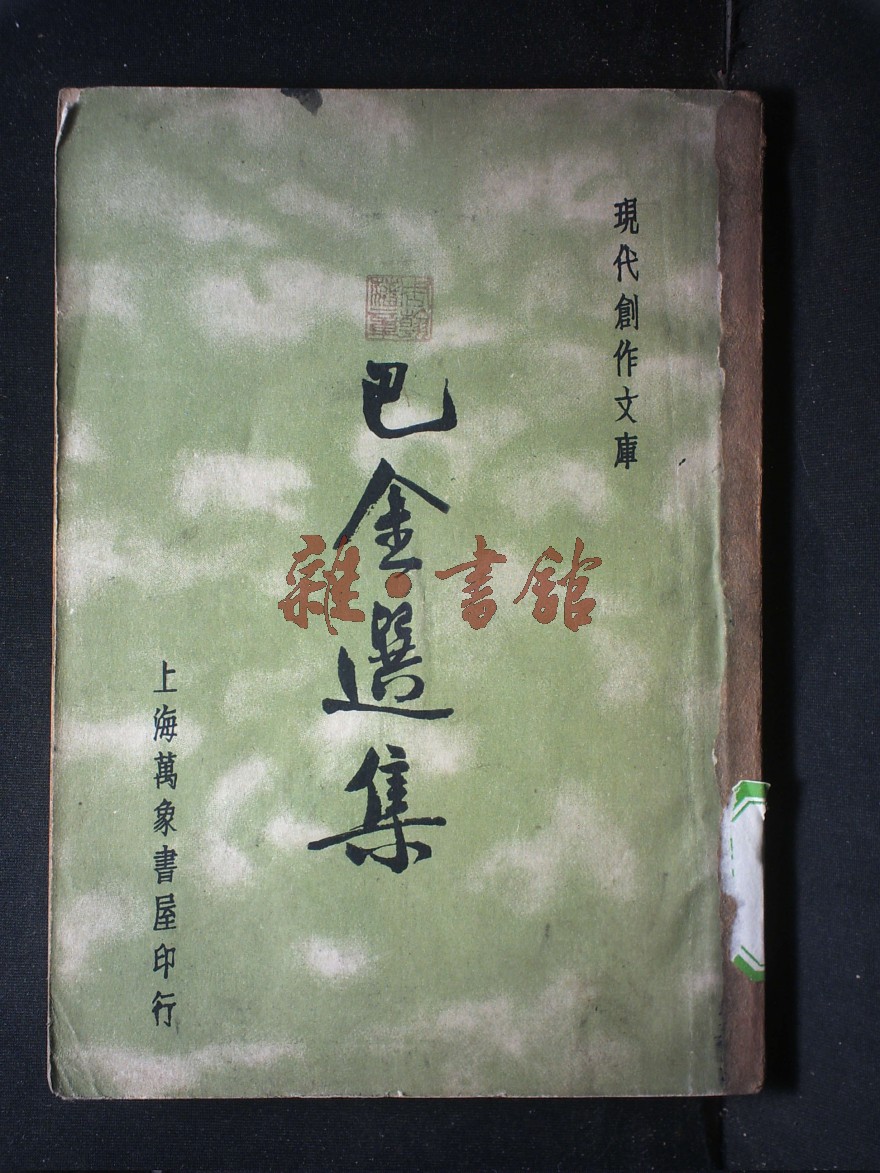 現代創作文庫
巴金選集
上海萬象書屋印行
雜·書館